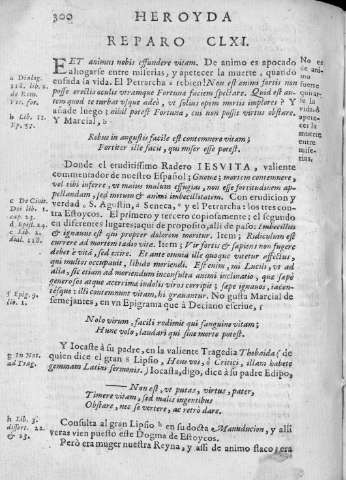 300 HEROYDA
REPARO CLXI.
ET animus nobis effundere vitam. De animo es apocado
ahogarse entre miserias, y apetecer la muerte, quando
enfada la vida. El Petrarcha a rebien! Non est animi fortis non
posse erectis oculis utramque Fortunæ faciem spectare. Quid est
tem quod te turbat usque adeò, ut solius opem mortis implores? Y
añade luego: nihil potest Fortuna, cui non possit virtus obstare.
Y Marcial, b
Rebus in angustis facile est contemnere vitam;
Fortiter ille facit, qui miser esse potest.
Donde el eruditissimo Radero IESVITA, valiente
commentador de nuestro Español; Gnome; mortem contemnere,
vel sibi inferre, ut maius malum effugias, non esse fortitudinem
appellandam, sed metum & animi imbecillitatem. Con erudicion y
verdad. S. Agustin, c Seneca, d y el Petrarcha los tres con-
tra Estoycos. El primero y tercero copiosamente; el segundo
en diferentes lugares; aqui de proposito, alli de paso: Imbecillus
& ignavus est qui propter dolorem moritur. Item; Ridiculum est
currere ad mortem tædio vitæ. Item; Vir fortis & sapiens non fugere
debet è vita, sed exire. Et ante omnia ille quoque vitetur affectus,
qui multos occupavit, libido moriendi. Est enim, mi Lucili, ut ad
alia, sic etiam ad moriendum inconsulta animi inclinatio, quæ sæpè
generosos atque acerrimæ indolis viros corripit; sæpè ignavos, iacen-
tésque: illi contemnunt vitam, hi gravantur. No gusta Marcial de
semejantes, en vn Epigrama que à Deciano escriue, f
Nolo virum, facili redimit qui sanguine vitam;
Hunc volo, laudari qui sine morte potest.
Y Iocaste à su padre, en la valiente Tragedia Thebaida (de
quien dice el gran g Lipsio, Hem vos, ô Critici, illam habete
gemmam Latini sermonis.) Iocasta, digo, dice à su padre Edipo,
—— Non est, ut putas, virtus, pater,
Timere vitam, sed malis ingentibus
Obstare, nec se vertere, ac retrò dare.
Consulta al gran Lipsio h en su docta Manuducion, y assi
veras vien puesto este Dogma de Estoycos.
Però era muger nuestra Reyna, y assi de animo flaco; era
a Dialog.
118. lib. 2.
de Rem.
Vtr. for.
b Lib. 11.
Ep. 57.
c De Civit.
Dei lib. 1.
cap. 23.
d Epist. 24.
e Lib. 2.
dial. 118.
f Epig. 9.
lib. 1.
g In Not.
ad Trag.
h Lib. 3.
dissert. 22.
& 23.
No es
de ani-
mo
fuerte
la
muerte
entre
mise-
rias.